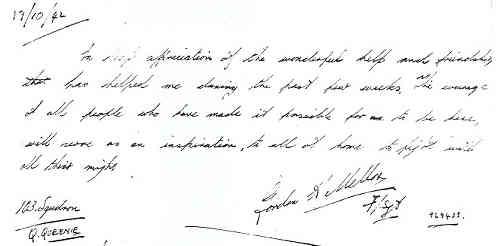 19/10/42
In deep appreciation of the wonderful help and friendship
that has helped me during the past few weeks, the courage
of all people who have made it possible for me to be here,
will serve as an inspiration, to all at home to fight with
all their might
Gordon H Mellor
F/Sgt
103. Squadron
Q. QUEENIE